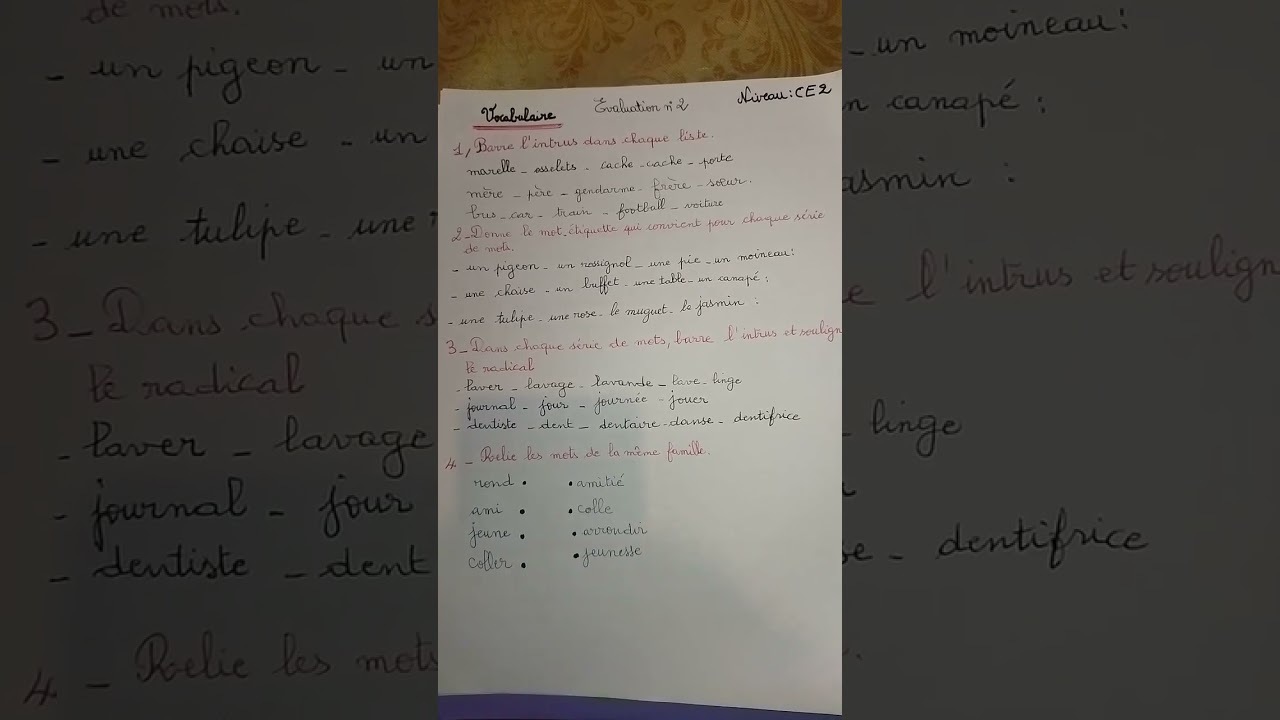 Vocabulaire Evaluation n°2 Niveau: CE2
1, Barre l'intrus dans chaque liste.
marelle - osselets - cache-cache - porte
mère - père - gendarme - frère - sœur.
bus - car - train - football - voiture
2-Donne le mot-étiquette qui convient pour chaque série
de mots.
- un pigeon - un rossignol - une pie - un moineau:
- une chaise - un buffet - une table - un canapé:
- une tulipe - une rose - le muguet - le jasmin :
3-Dans chaque série de mots, barre l'intrus et soulign
le radical
- laver - lavage - lavande - lave-linge
- journal - jour - journée - jouer
- dentiste - dent - dentaire - danse - dentifrice
4 - Relie les mots de la même famille.
rond • • amitié
ami • • colle
jeune • • arrondir
coller • • jeunesse